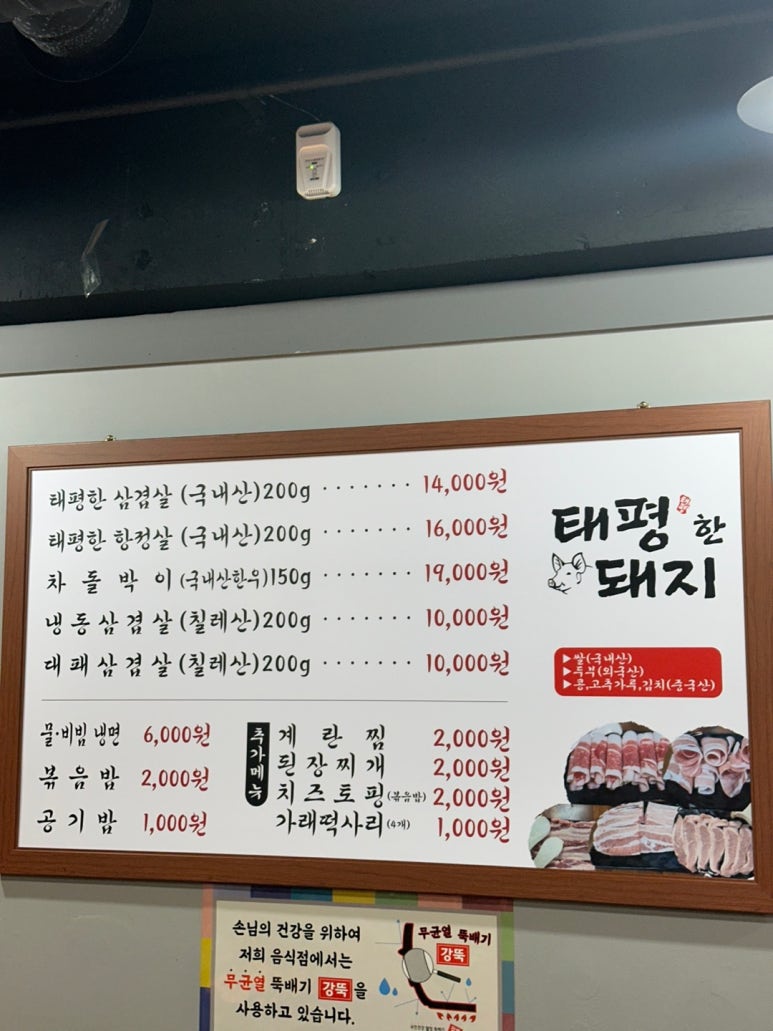 태평한 삼겹살 (국내산)200g ······· 14,000원
태평한 항정살 (국내산)200g ······· 16,000원
차 돌 박 이 (국내산한우)150g ······· 19,000원
냉동삼겹살 (칠레산)200g ······· 10,000원
대패삼겹살 (칠레산)200g ······· 10,000원
물·비빔 냉면 6,000원
볶음밥 2,000원
공기밥 1,000원
추가메뉴
계 란 찜 2,000원
된장찌개 2,000원
치즈토핑(볶음밥) 2,000원
가래떡사리(4개) 1,000원
태평한
돼지
▶쌀(국내산)
▶두부(외국산)
▶콩,고추가루,김치(중국산)
손님의 건강을 위하여
저희 음식점에서는
무균열 뚝배기 강뚝 을
사용하고 있습니다.
무균열 뚝배기
강뚝